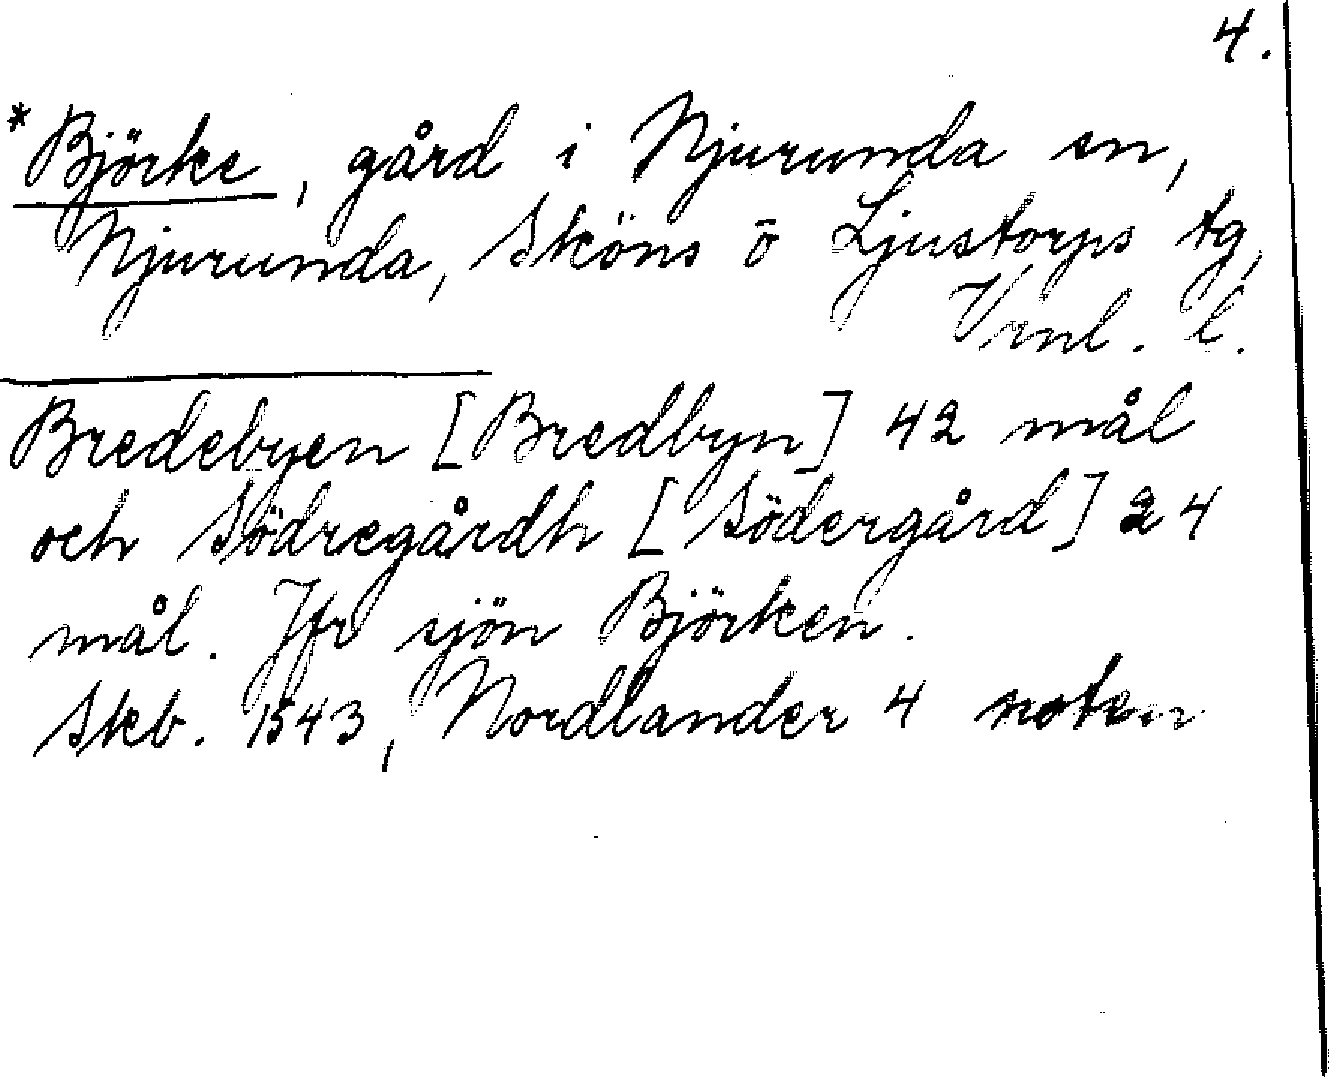 4.
*Björke, gård i Njurunda sn,
Njurunda, Sköns o Ljustorps tg,
Vrnl. l.
Bredebyen [Bredbyn] 42 mål
och Södregårdh [Södergård] 24
mål. Jfr sjön Björken.
Skb. 1543, Nordlander 4 noten